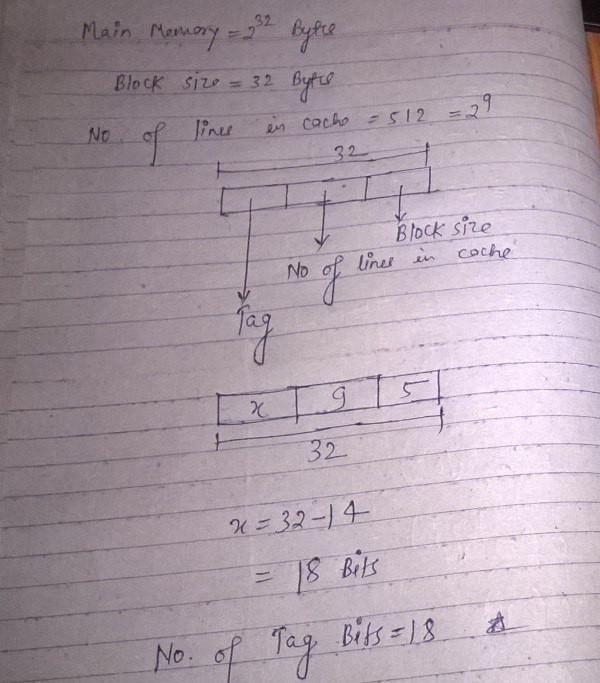 Main Memory = 2^32 Bytes
Block size = 32 Bytes
No. of lines in cache = 512 = 2^9
32
Block size
No of lines in cache
Tag
x 9 5
32
x = 32 - 14
= 18 Bits
No. of Tag Bits = 18